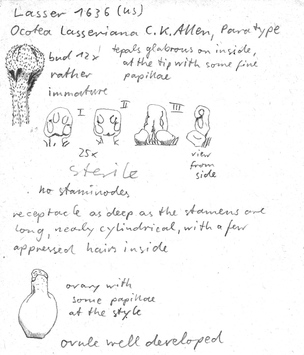 Lasser 1636 (US)
Ocotea Lasseriana C.K. Allen, Paratype
bud 12x
rather
immature
tepals glabrous on inside,
at the tip with some fine
papillae
I II III
25x
view
from
side
sterile
no staminodes
receptacle as deep as the stamens are
long, nearly cylindrical, with a few
appressed hairs inside
ovary with
some papillae
at the style
ovule well developed